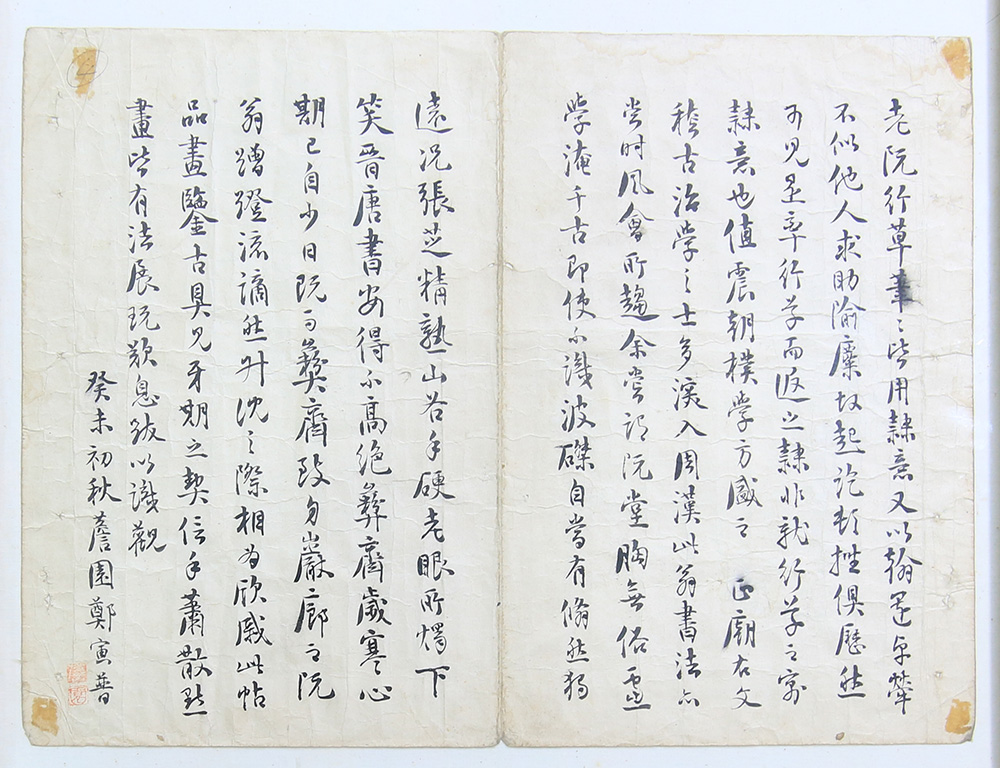 老阮行草筆〻皆用隸意又以翰墨卓犖
不似他人求助隃麋故起訖頓挫俱歷然
可見是率行草而返之隸非就行草之寓
隸意也値震朝樸學方盛之 正廟右文
稽古治學之士多深入周漢此翁書法亦
當時風會所趨余嘗謂阮堂胸無俗塵
學淹千古即使不識波磔自當有翛然獨
遠況張芝精熟山谷手硬老眼所燭下
笑晉唐書安得不高絶彛齋歲寒心
期已自少日阮而彛齋致身巖廊之阮
翁蹭蹬流謫然升沈之際相爲欣戚此帖
品畫鑒古具見牙期之契信手蕭散點
畫皆有法展玩歎息跋以識觀
癸未初秋薝園鄭寅普